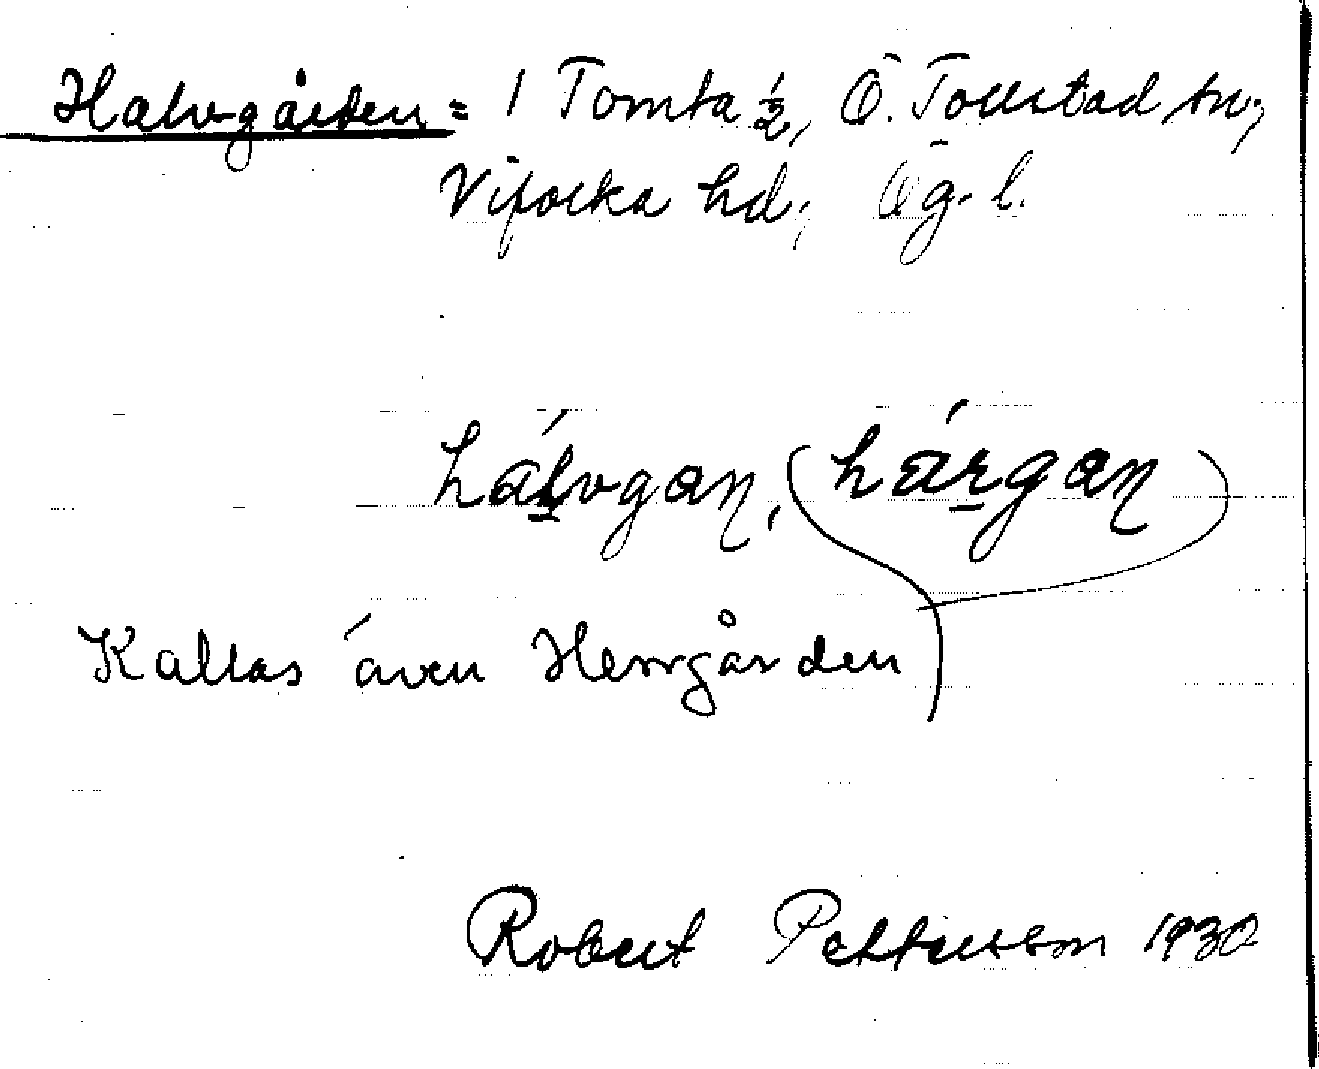 Halvgården = 1 Tomta ½, Ö. Tollstad sn;
Vifolka hd; Ög. l.
hálvgaɳ, (hárgaɳ)
Kallas även Herrgården
Robert Pettersson 1930